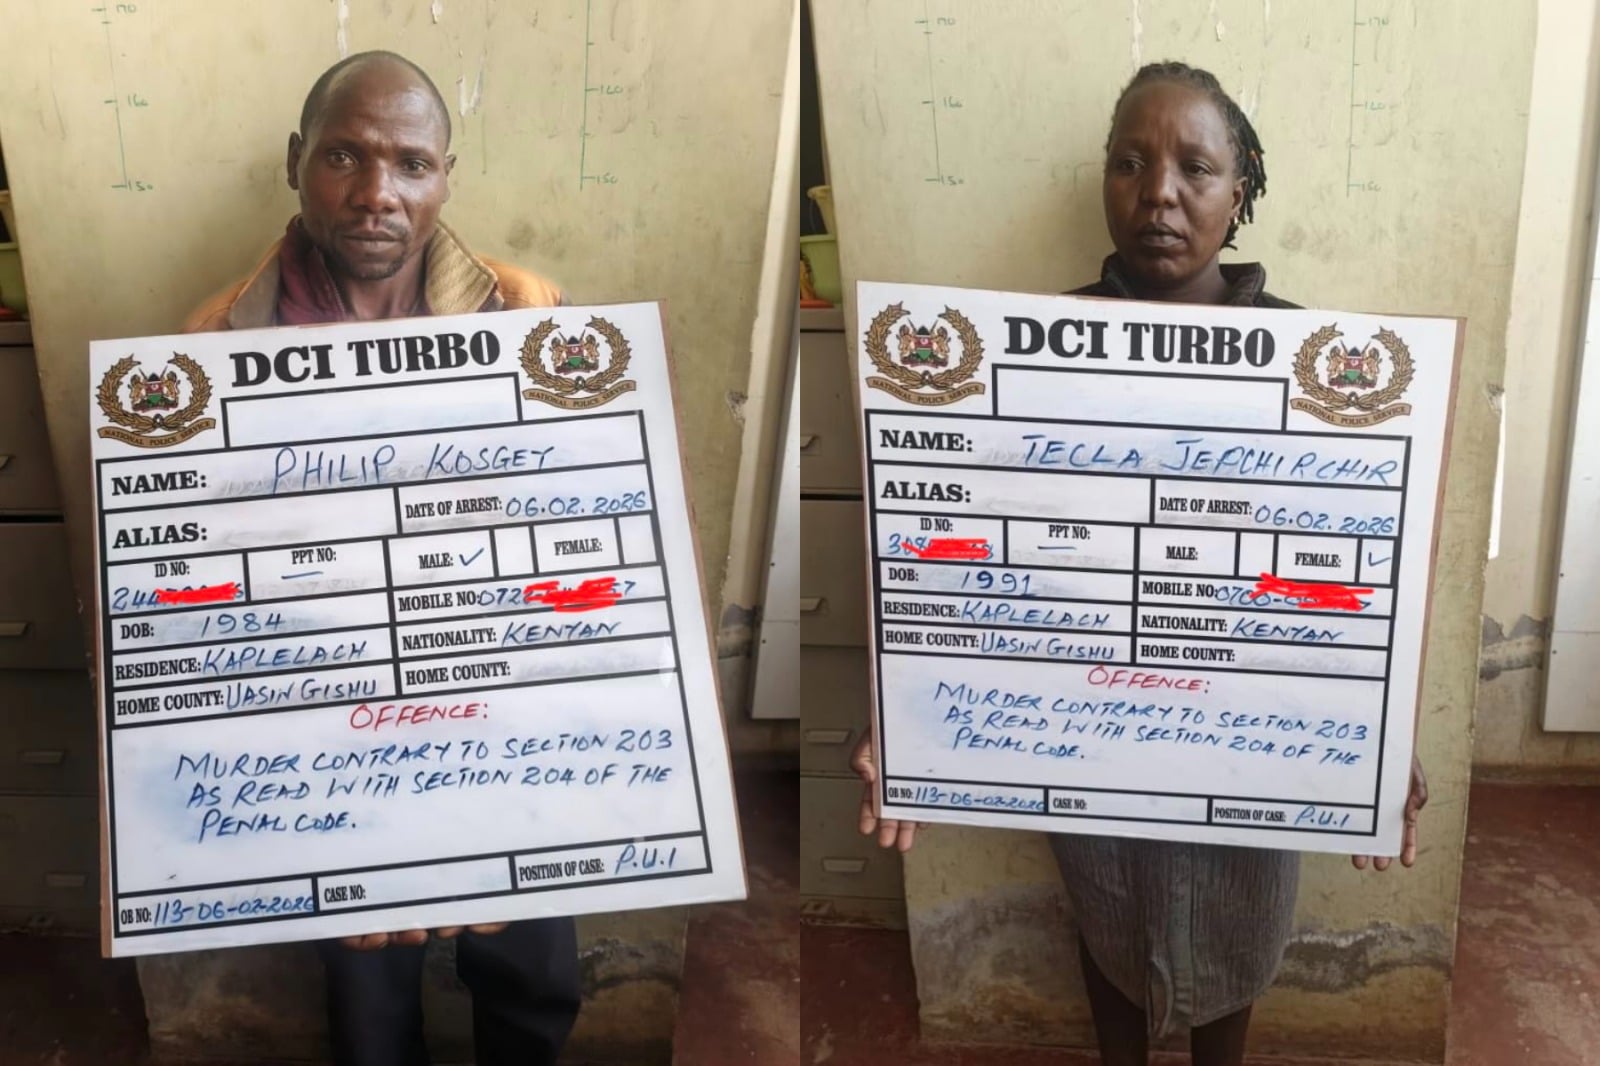 170
160
150
160
150
DCI TURBO
NATIONAL POLICE SERVICE
NATIONAL POLICE SERVICE
NAME: PHILIP KOSGEY
ALIAS:
DATE OF ARREST: 06.02.2026
ID NO:
PPT NO: —
MALE: ✓
FEMALE:
DOB: 1984
MOBILE NO:
RESIDENCE: KAPLELACH
NATIONALITY: KENYAN
HOME COUNTY: UASIN GISHU
HOME COUNTY:
OFFENCE:
MURDER CONTRARY TO SECTION 203
AS READ WITH SECTION 204 OF THE
PENAL CODE.
OB NO: 113-06-02-2026
CASE NO:
POSITION OF CASE: P.U.I
170
160
150
170
160
150
DCI TURBO
NATIONAL POLICE SERVICE
NATIONAL POLICE SERVICE
NAME: TECLA JEPCHIRCHIR
ALIAS:
DATE OF ARREST: 06.02.2026
ID NO:
PPT NO: —
MALE:
FEMALE: ✓
DOB: 1991
MOBILE NO:
RESIDENCE: KAPLELACH
NATIONALITY: KENYAN
HOME COUNTY: UASIN GISHU
HOME COUNTY:
OFFENCE:
MURDER CONTRARY TO SECTION 203
AS READ WITH SECTION 204 OF THE
PENAL CODE.
OB NO: 113-06-02-2026
CASE NO:
POSITION OF CASE: P.U.I